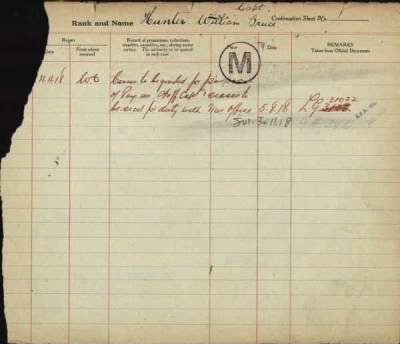 Capt.
Rank and Name Hunter William Bruce Continuation Sheet No.
Report
Record of promotions, reductions, transfers, casualties, etc., during active service. The authority to be quoted in each case
Place
Date
REMARKS
Taken from Official Documents
Date
From whom received
M
WO
Ceases to be graded for purposes
of Pay as Staff Capt & ceases to
be empld for duty with War Office 5.8.18
LG 31022